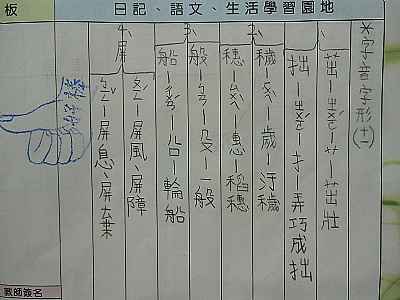 板
日記、語文、生活學習園地
*字音字形(十一)
茁-ㄓㄨㄛˊ-艹-茁壯
拙-ㄓㄨㄛˊ-扌-弄巧成拙
2、穢-ㄏㄨㄟˋ-歲-汙穢
穗-ㄙㄨㄟˋ-惠-稻穗
3、般-ㄅㄢ-殳-一般
船-ㄔㄨㄢˊ-㕣-輪船
4、屏
ㄆㄧㄥˊ-屏風、屏障
ㄅㄧㄥˇ-屏息、屏棄
教師簽名